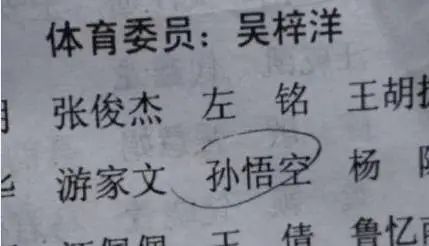 体育委员：吴梓洋
张俊杰 左 铭 王胡
游家文 孙悟空 杨
佩佩 王 倩 鲁忆